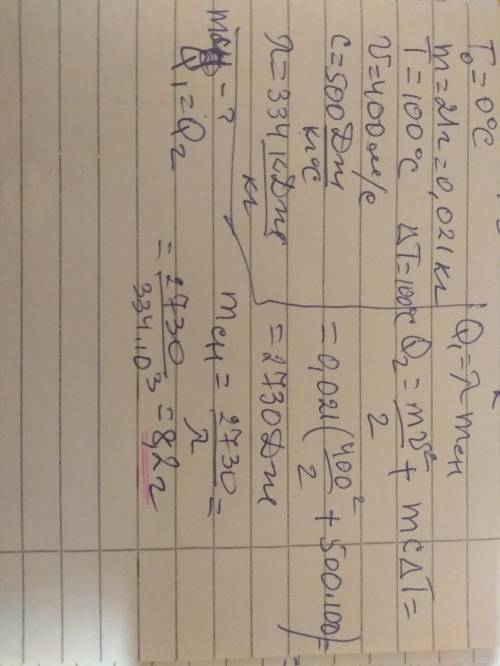 T₀ = 0°C
m = 21г = 0,021 кг
T = 100°C ΔT = 100°C
v = 400 м/с
c = 500 Дж/кг°C
λ = 334 кДж/кг
mсн - ?
Q₁ = Q₂
Q₁ = λ mсн
Q₂ = mv²/2 + mcΔT =
= 0,021 (400²/2 + 500·100) =
= 2730 Дж
mсн = 2730/λ =
= 2730/334·10³ = 8,2г